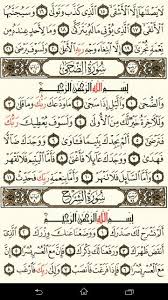 لَا يَصْلَىٰهَآ إِلَّا ٱلْأَشْقَى ١٥ ٱلَّذِى كَذَّبَ وَتَوَلَّىٰ ١٦ وَسَيُجَنَّبُهَا
ٱلْأَتْقَى ١٧ ٱلَّذِى يُؤْتِى مَالَهُۥ يَتَزَكَّىٰ ١٨ وَمَا لِأَحَدٍ عِندَهُۥ مِن
نِّعْمَةٍ تُجْزَىٰٓ ١٩ إِلَّا ٱبْتِغَآءَ وَجْهِ رَبِّهِ ٱلْأَعْلَىٰ ٢٠ وَلَسَوْفَ يَرْضَىٰ ٢١
سُورَةُ الضُّحَىٰ
بِسْمِ ٱللَّهِ ٱلرَّحْمَٰنِ ٱلرَّحِيمِ
وَٱلضُّحَىٰ ١ وَٱلَّيْلِ إِذَا سَجَىٰ ٢ مَا وَدَّعَكَ رَبُّكَ وَمَا قَلَىٰ ٣
وَلَلْءَاخِرَةُ خَيْرٌ لَّكَ مِنَ ٱلْأُولَىٰ ٤ وَلَسَوْفَ يُعْطِيكَ رَبُّكَ
فَتَرْضَىٰٓ ٥ أَلَمْ يَجِدْكَ يَتِيمًا فَـَٔاوَىٰ ٦ وَوَجَدَكَ ضَآلًّا
فَهَدَىٰ ٧ وَوَجَدَكَ عَآئِلًا فَأَغْنَىٰ ٨ فَأَمَّا ٱلْيَتِيمَ فَلَا تَقْهَرْ ٩
وَأَمَّا ٱلسَّآئِلَ فَلَا تَنْهَرْ ١٠ وَأَمَّا بِنِعْمَةِ رَبِّكَ فَحَدِّثْ ١١
سُورَةُ الشَّرْحِ
بِسْمِ ٱللَّهِ ٱلرَّحْمَٰنِ ٱلرَّحِيمِ
أَلَمْ نَشْرَحْ لَكَ صَدْرَكَ ١ وَوَضَعْنَا عَنكَ وِزْرَكَ ٢
ٱلَّذِىٓ أَنقَضَ ظَهْرَكَ ٣ وَرَفَعْنَا لَكَ ذِكْرَكَ ٤ فَإِنَّ مَعَ ٱلْعُسْرِ يُسْرًا ٥ إِنَّ مَعَ ٱلْعُسْرِ
يُسْرًا ٦ فَإِذَا فَرَغْتَ فَٱنصَبْ ٧ وَإِلَىٰ رَبِّكَ فَٱرْغَب ٨